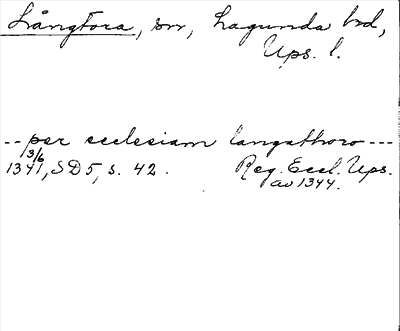 Långtora, sn, Lagunda hd,
Ups. l.
-- per ecclesiam langathoro ---
13/6
1341, SD 5, s. 42. Reg. Eccl. Ups.
av 1344.